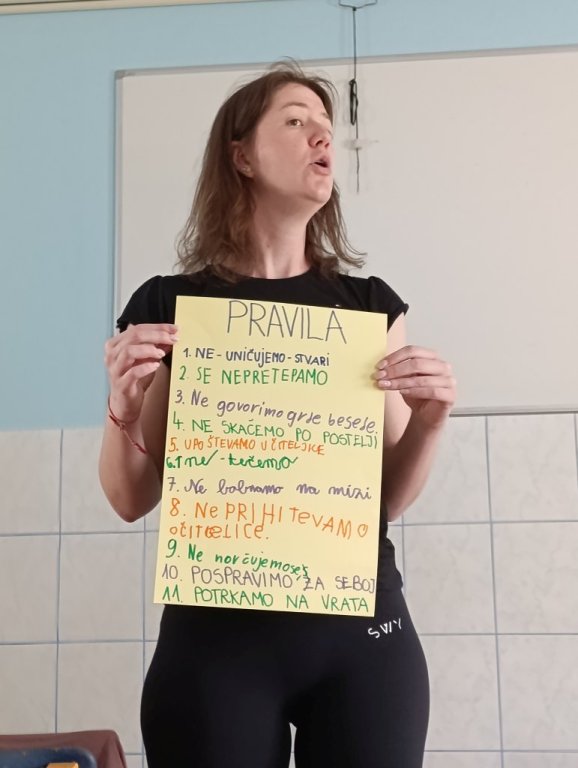 PRAVILA
1. NE - UNIČUJEMO - STVARI
2. SE NEPRETEPAMO
3. Ne govorimo grde besede.
4. NE SKAČEMO PO POSTELJI
5. UPOŠTEVAMO UČITELJICE
6. ne - tečemo
7. Ne bobnamo na mizi
8. Ne PRIHITEVAMO
očitelice.
9. Ne norčujemose
10. POSPRAVIMO ZA SEBOJ
11. POTRKAMO NA VRATA
SWY